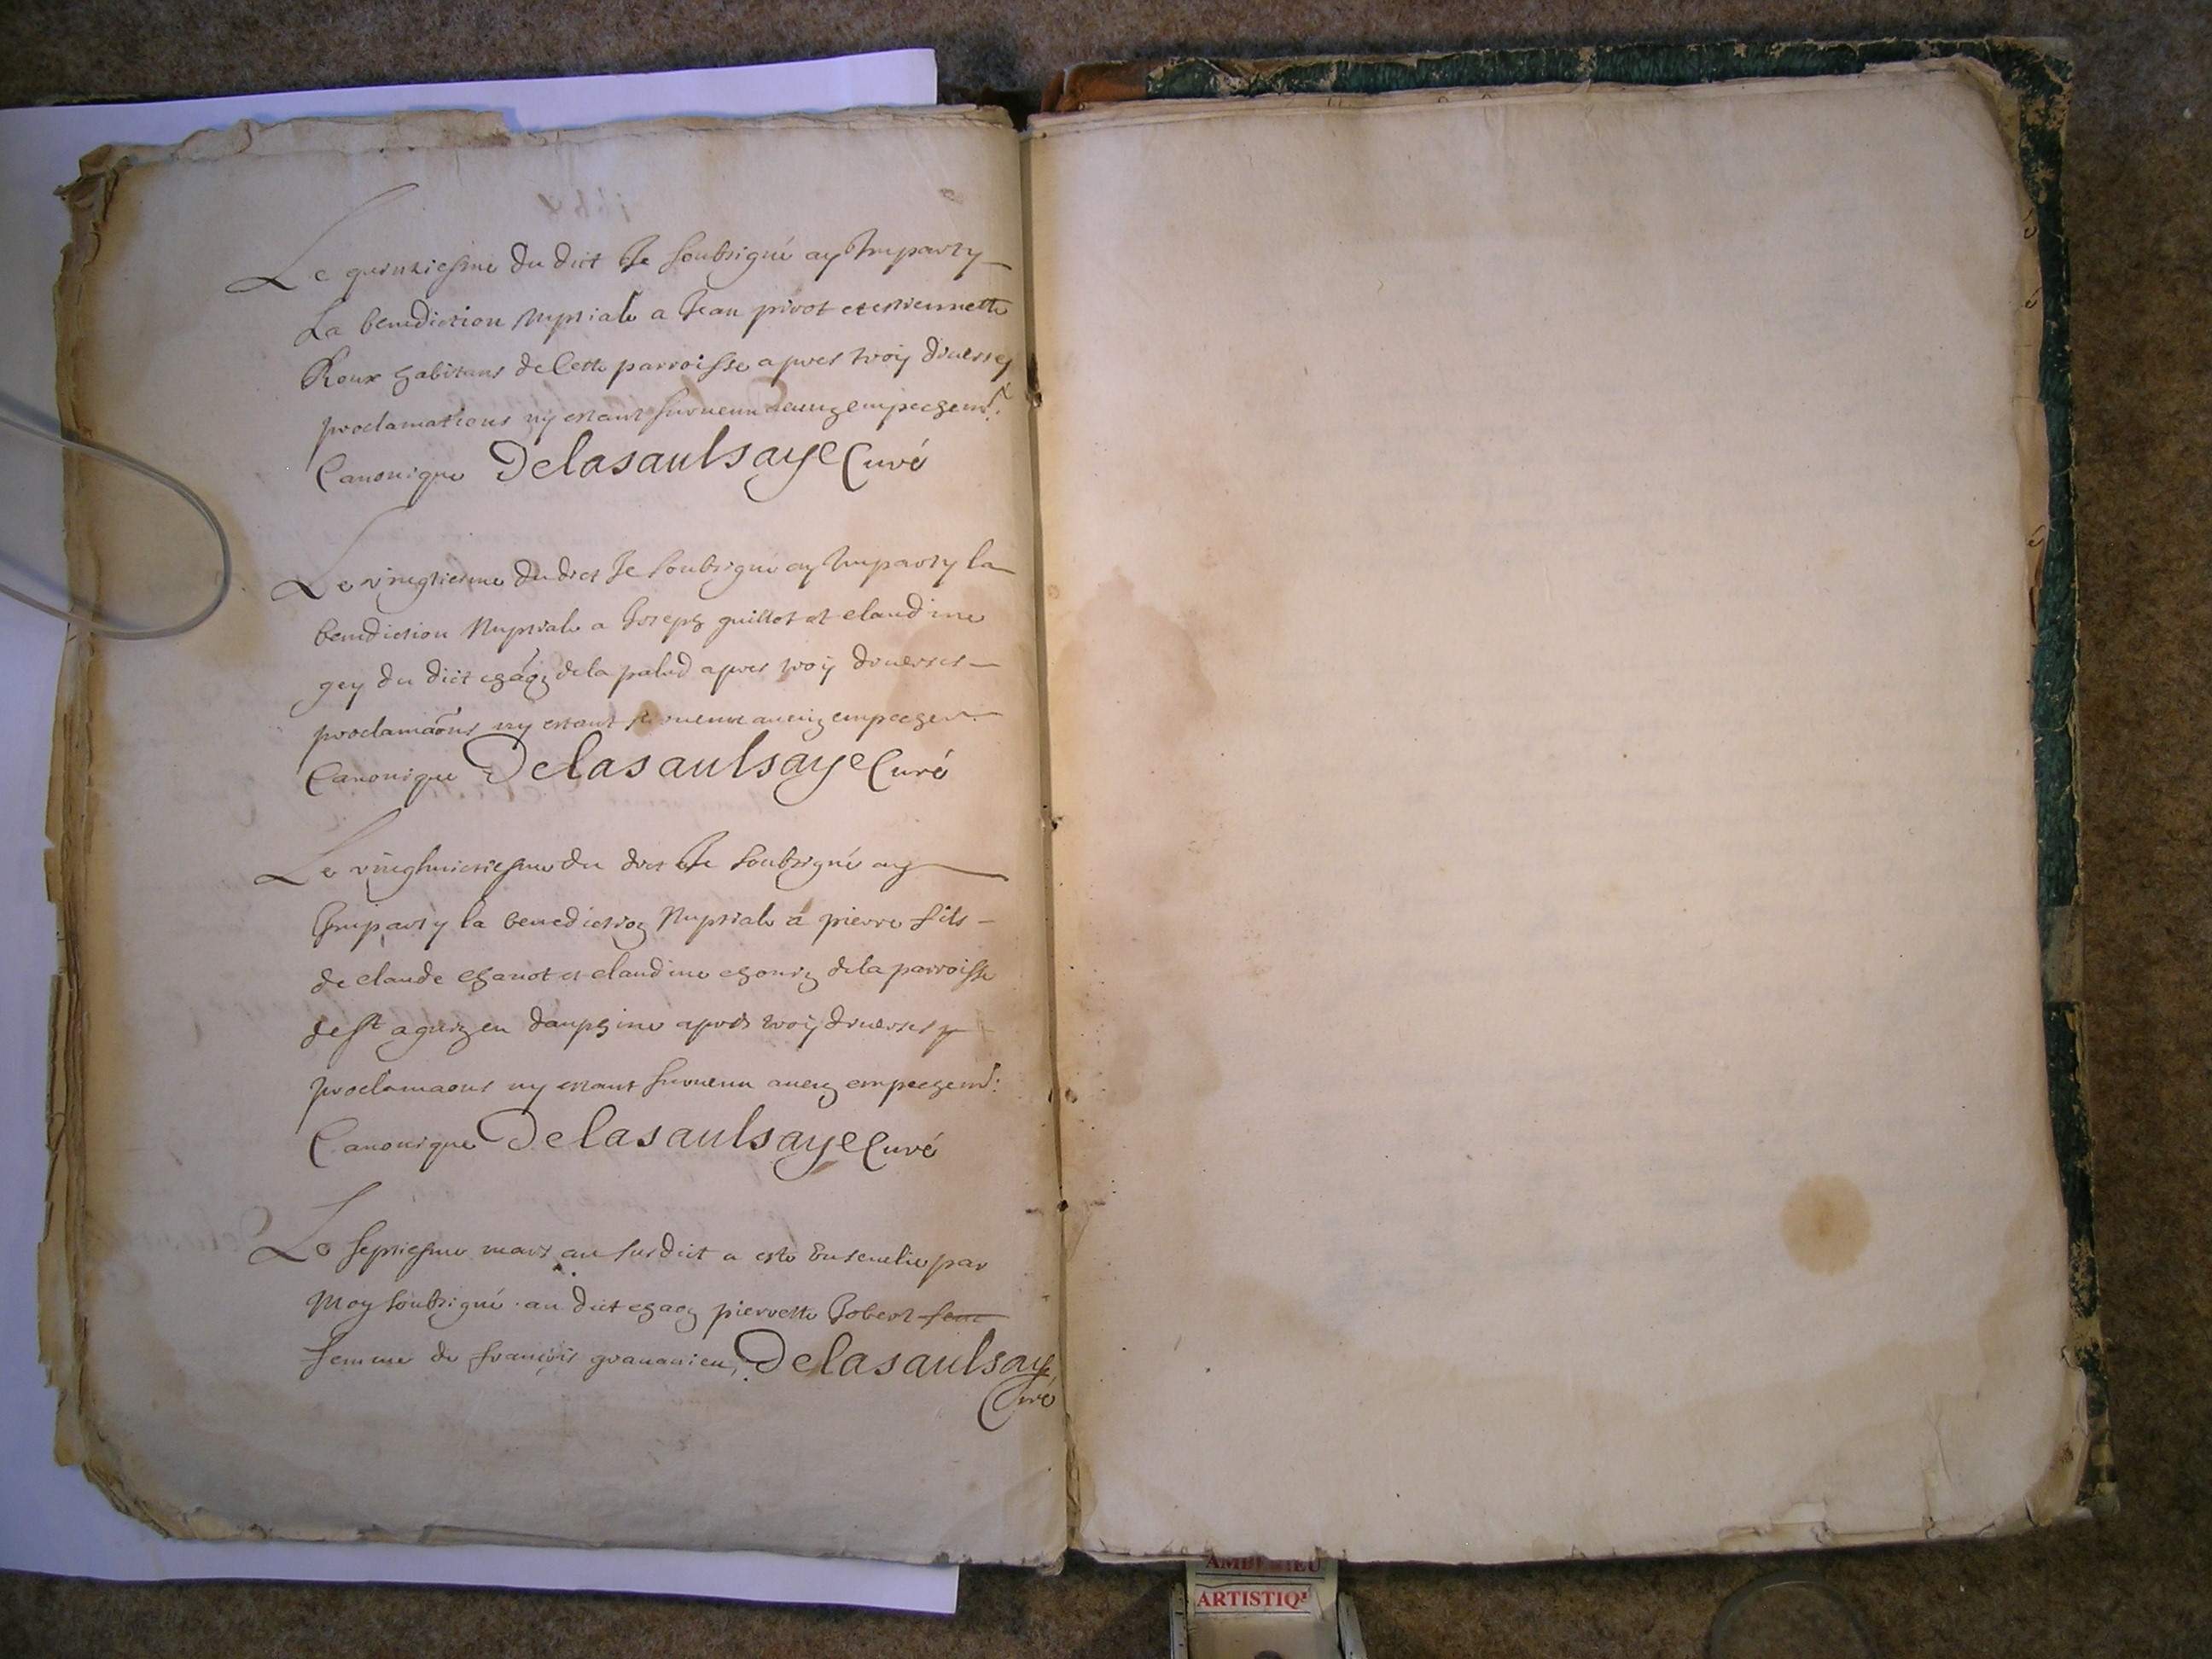 Le quinziesme du dict Je soubsigné ay Imparty
La benediction Nuptiale a Jean pivot et estiennette
Roux habitans de Cette parroisse apres troij diverses
proclamations ny estant survenu aucung empechemt.
Canonique Delasaulsaye Curé
Le vingtiesme du dict Je soubsigné ay Imparty la
benediction Nuptiale a Joseph guillot et claudine
gey du dict de la palud apres troij diverses
proclamaons ny estant aucung
Canonique Delasaulsaye Curé
Le du dict Je soubsigné ay
Imparty la benediction Nuptiale a pierre fils
de claude chanot et claudine de la parroisse
de st en dauphine apres troij diverses
proclamaons ny estant survenu aucung empechemt:
Canonique Delasaulsaye Curé
Le septiesme mars an susdict a este Ensevelie par
Moy soubsigné au dict pierrette Robert
femme de françois Delasaulsaye
Curé
AMBERIEU
ARTISTIQ